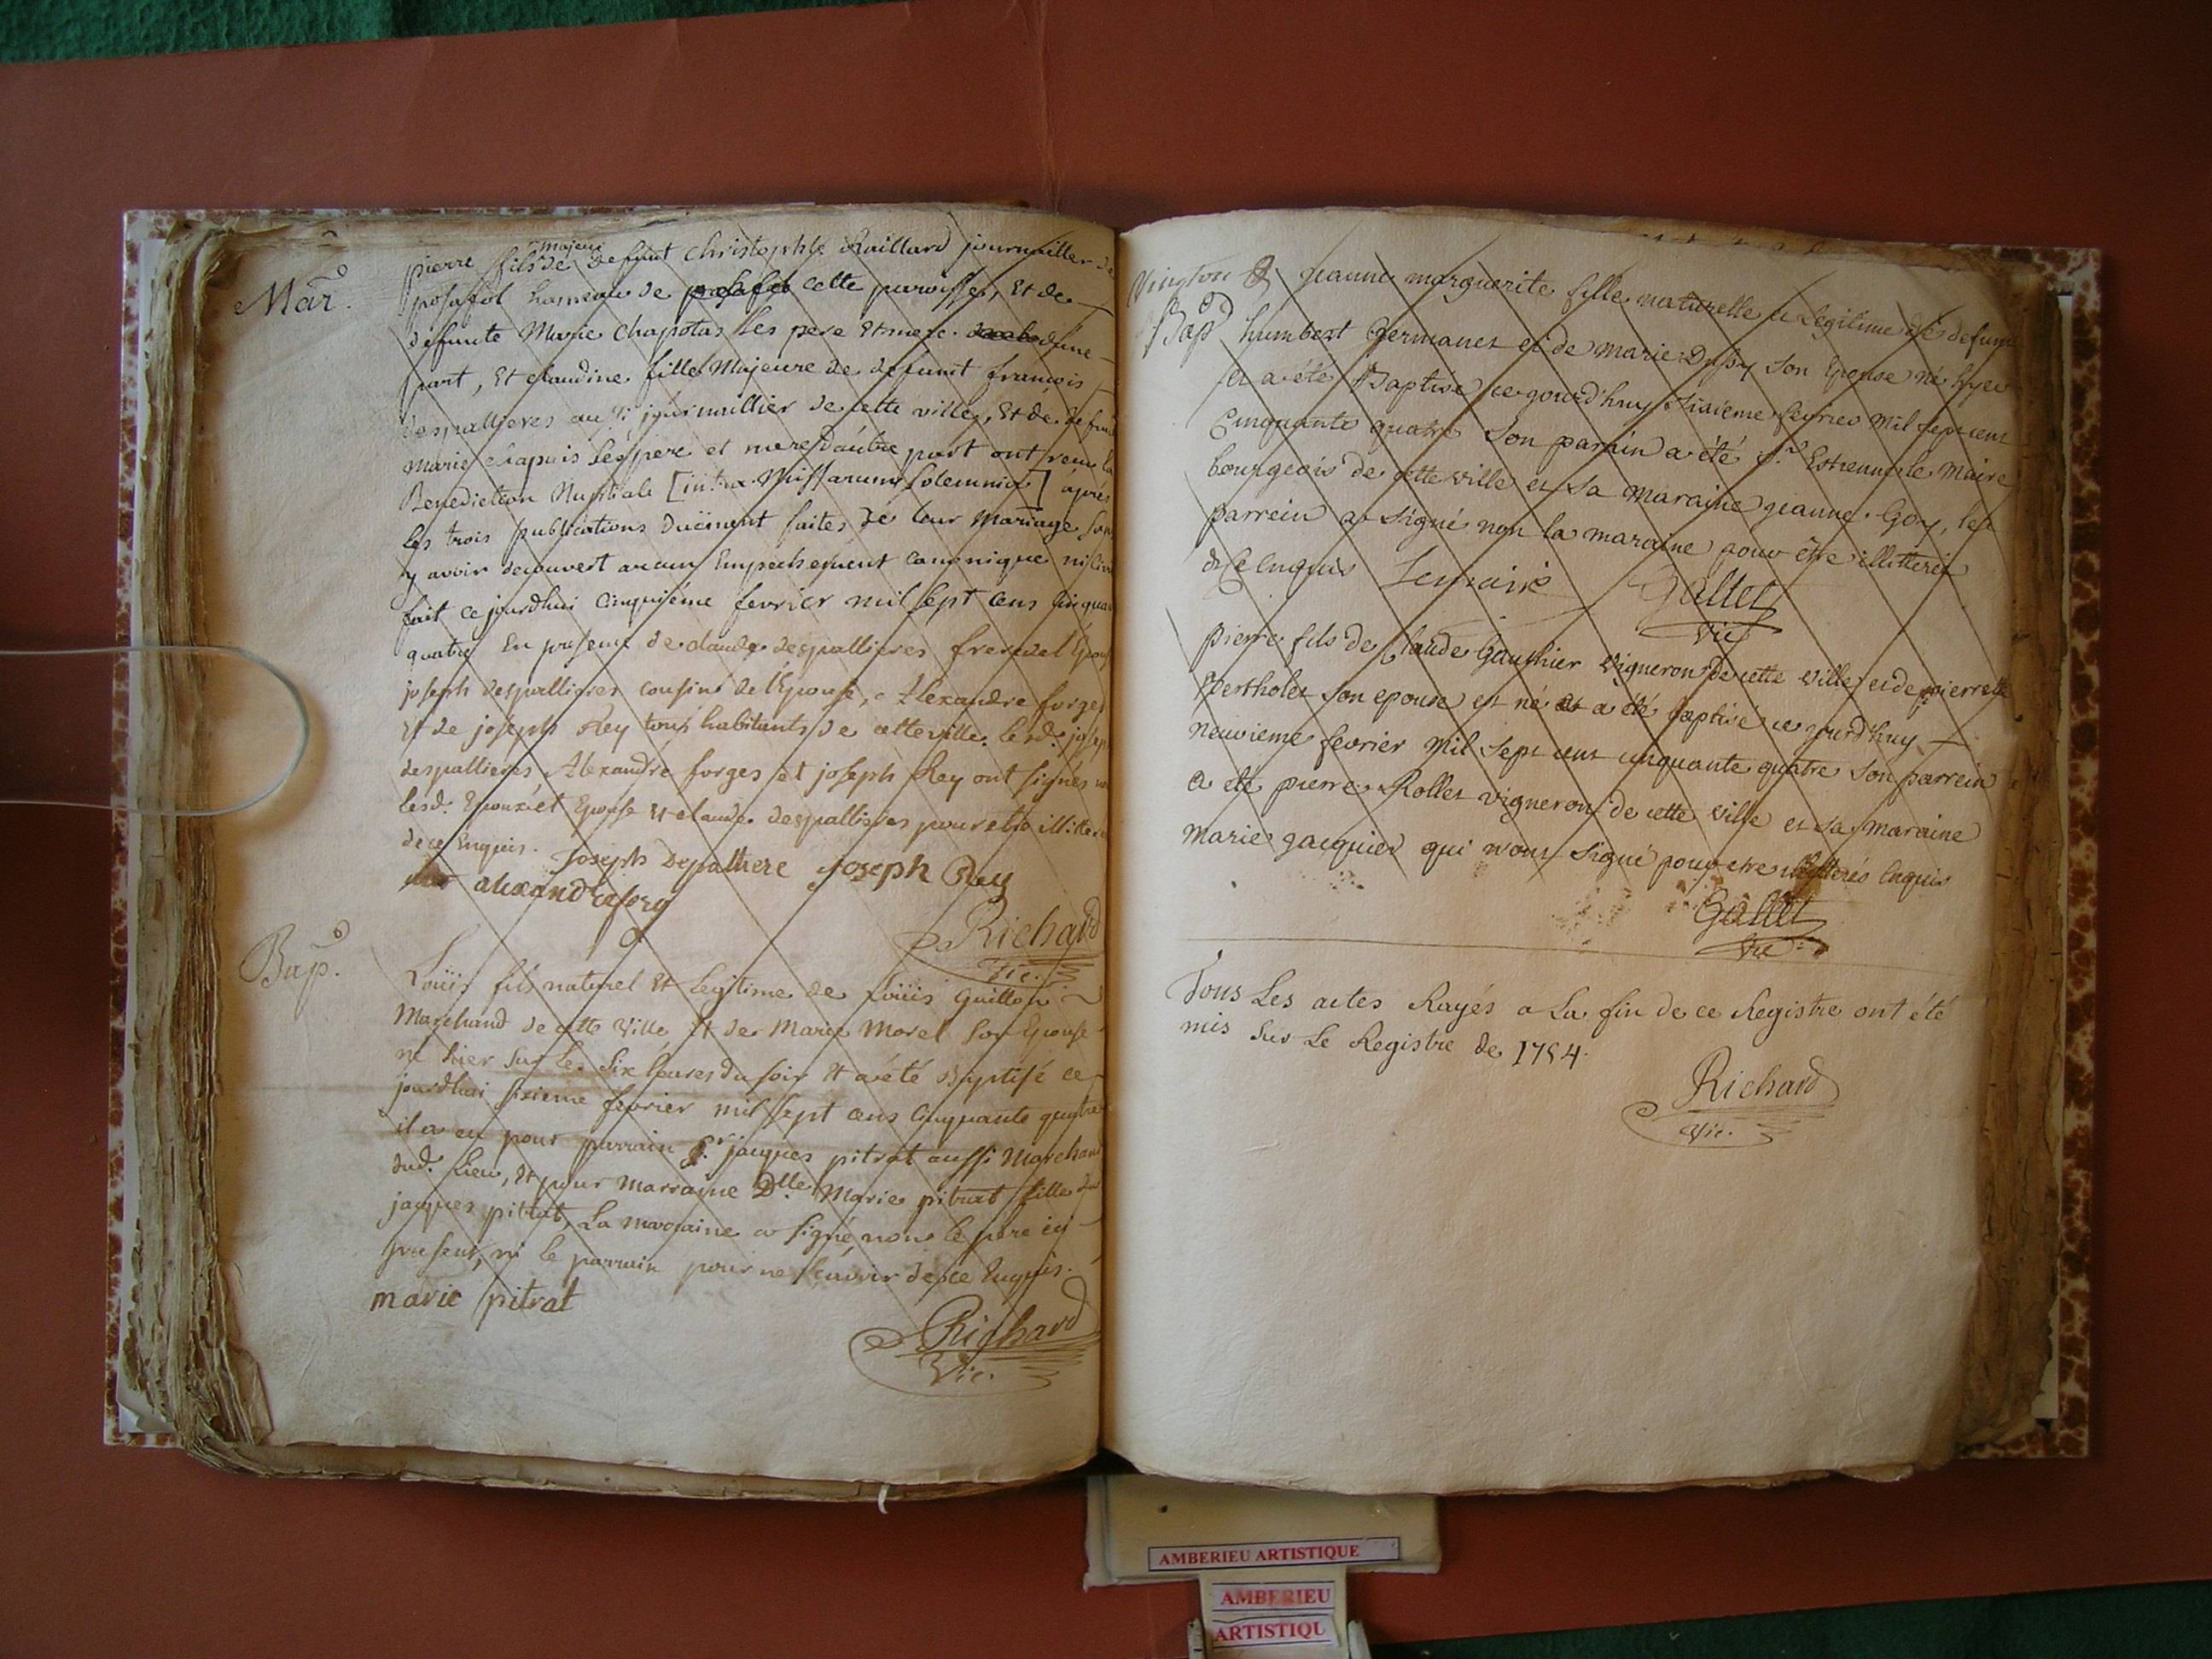 Mar.
pierre fils majeur de defunt Christophle Raillard journallier de
posafol hameau de cette paroisse, Et de
defunte Marie Chapotas ses pere et mere d'une
part, Et claudine fille Majeure de defunt françois
despallieres aussi journaillier de cette ville, Et de defunte
marie chapuis ses pere et mere d'autre part ont recus la
Benediction Nuptiale [intra Missarum solemnia] aprés
les trois publications Duëment faites de leur Mariage sans
y avoir decouvert aucun Empechement canonique ni civil
fait ce jourdhui cinquiéme fevrier mil sept cens cinquante
quatre En presence de claude despallieres frere de l'Epouse
joseph despallieres cousins de l'Epouse, Alexandre forges
Et de joseph Rey tous habitants de cette ville. lesd. joseph
despallieres Alexandre forges et joseph Rey ont signés non
lesd. Epoux et Epouse Et claude despallieres pour etre illitterés
de ce Enquis.
Joseph Depalliere Joseph Rey
alexandre forg
Richard
Vic.
Bap.
Loüis fils naturel Et Legitime de Loüis Guillon
Marchand de cette Ville Et de Marie Morel son Epouse
né hier sur les six heures du soir Et a été Baptisé ce
jourdhui sixieme fevrier mil sept cens cinquante quatre
il a eu pour parrain Sr. jacques pitrat aussi Marchand
dud. Lieu, Et pour marraine Dlle Marie pitrat fille du
jacques pitrat, La marraine a signé non le père ici
present, ni le parrain pour ne sçavoir de ce Enquis.
marie pitrat
Richard
Vic.
Bap
jeanne marguerite fille naturelle et Legitime de defunt
humbert Germanet et de marie Dupuy son Epouse né hyer
et a été Baptisé ce jourd'huy sixieme fevrier mil sept cent
Cinquante quatre son parrain a été Sr. Estienne le Maire
bourgeois de cette ville et sa maraine jeanne Goy, le
parrein a signé non la maraine pour être illitterée
de ce enquis Lemaire Gallet
Vic
Pierre fils de Claude Gauthier Vigneron de cette ville et de pierrette
Bertholet son epouse est né et a été baptisé ce jourd'huy
neuvieme fevrier mil sept cent cinquante quatre son parrein
a été pierre Rollet vigneron de cette ville et sa maraine
marie jacquier qui n'ont signé pour etre illitterés enquis
Gallet
Vic
Tous Les actes Rayés a La fin de ce Registre ont été
mis sur Le Registre de 1754.
Richard
Vic.
AMBERIEU ARTISTIQUE
AMBERIEU
ARTISTIQU